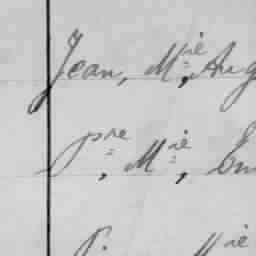 Jean, Mie, Aug
Pre, Mie, Em